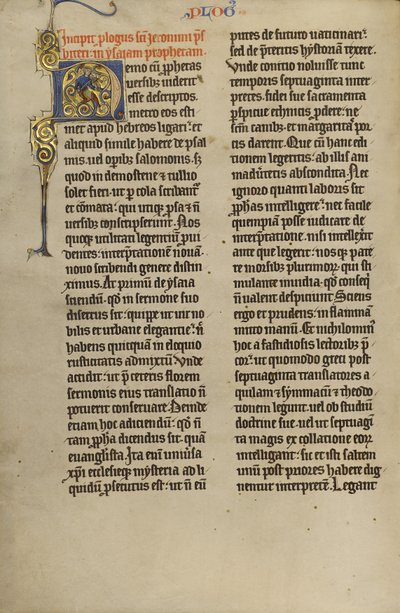 PLOG᷒
Incipit plogus scī ieronimi psb
biteri in ysaiam prophetam.
Nemo cū prophetas
uersibus uiderit
esse descriptos
metro eos esti
met apud hebreos ligari et
aliquid simile habere de psal
mis uel opibus salomonis. sꝫ
quod in demostene et tullio
solet fieri ut p cola scribant
et cōmata. qui utique psa et n̄
uersibus conscripserunt. Nos
quoque utilitati legentium pui
dentes interptatione nouā
nouo scribendi genere distin
ximus. Ac primum de ysaia
sciendū. qd in sermone suo
disertus sit. quippe ut uir no
bilis et urbane elegantie. n̄
habens quicquam in eloquio
rusticitatis admixtū. Unde
accidit ut p ceteris florem
sermonis eius translatio n̄
potuerit conseruare. Deinde
etiam hoc adiciendū. qd n̄
tam ppha dicendus sit quā
euangelista. Ita enī uniūsa
xpī ecclesieque mysteria ad li
quidū psecutus est. ut n̄ eū
putes de futuro uaticinari.
sed de pteritis hystoriā texere.
Unde conicio noluisse tunc
temporis septuaginta inter
pretes. fidei sue sacramenta
pspicue ethnicis pdere. ne
scm̄ canibus et margaritas por
cis darent. Que cū hanc edi
tionem legeritis. ab illis ani
maduertetis abscondita. Nec
ignoro quanti laboris sit
pphas intelligere. nec facile
quempiā posse iudicare de
interptatione. nisi intellexit
ante que legerit. nosque pate
re morsibus plurimoꝝ. qui sti
mulante inuidia. qd consequi
n̄ ualent despiciunt. Sciens
ergo et prudens. in flammā
mitto manū. Et nichilomin᷒
hoc a fastidiosis lectoribus p
cor. ut quomodo greci post
septuaginta translatores a
quilam et symmacū et theodo
tionem legunt. uel ob studiū
doctrine sue. uel ut septuagī
ta magis ex collatione eoꝝ
intelligant. sic et isti saltem
unū post priores habere dig
nentur interpretē. Legant